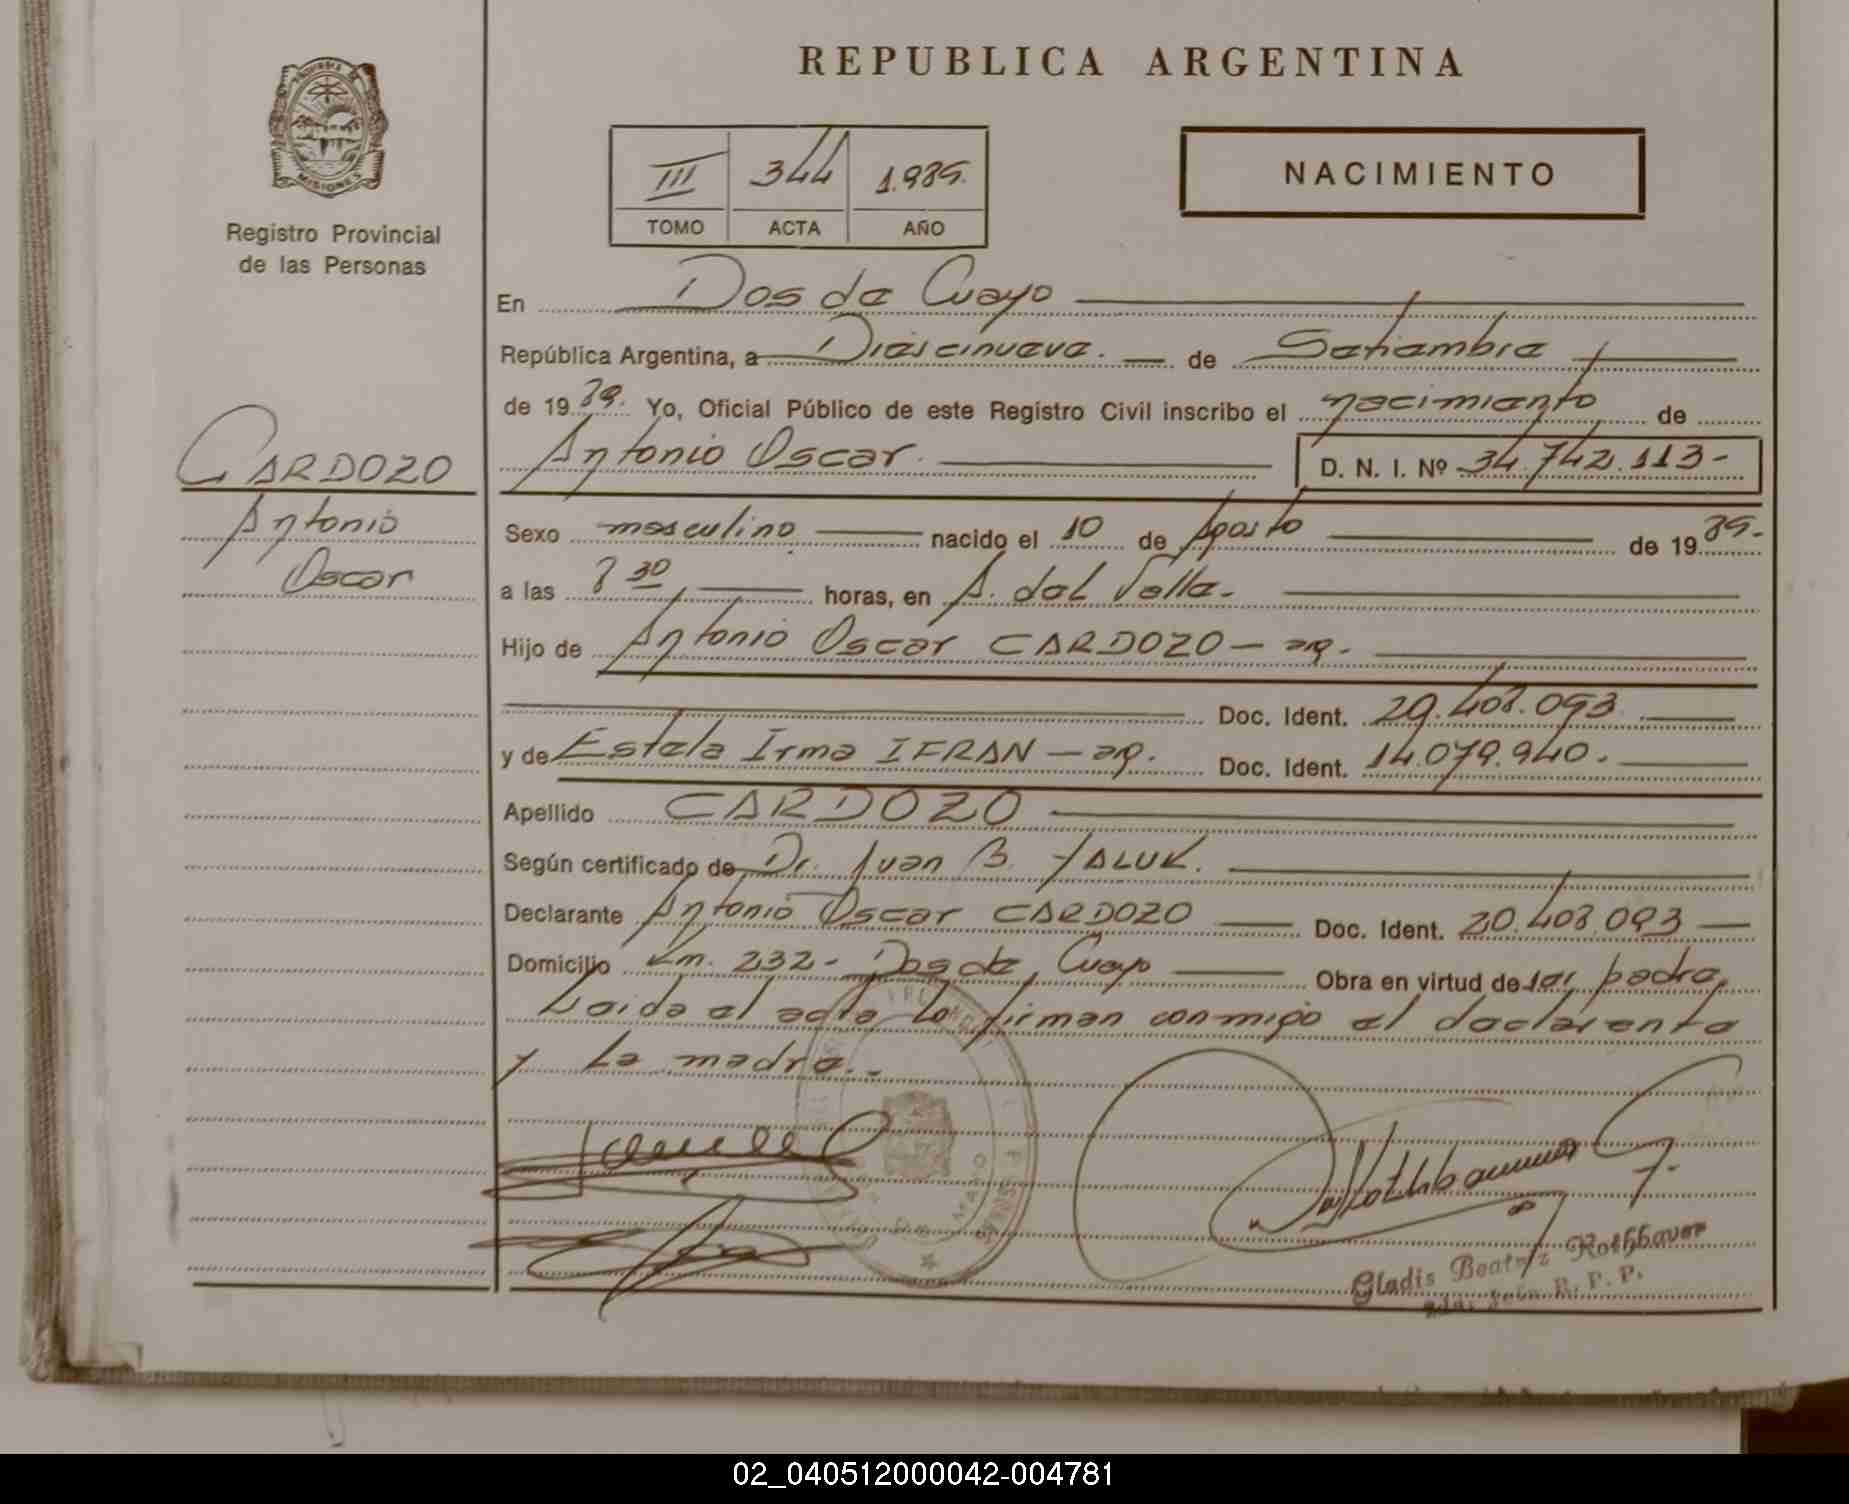 REPUBLICA ARGENTINA
PROVINCIA DE
MISIONES
Registro Provincial
de las Personas
III 344 1.989.
TOMO ACTA AÑO
NACIMIENTO
En Dos de Cuayo
República Argentina, a Diescinueve. de Satiambre
de 19 89. Yo, Oficial Público de este Registro Civil inscribo el nacimianto de
CARDOZO
Antonio
Oscar
Antonio Oscar. D. N. I. Nº 34.742.113-
Sexo masculino nacido el 10 de Agosto de 19 89.-
a las 8 30 horas, en A. del Valla.-
Hijo de Antonio Oscar CARDOZO - ag.-
Doc. Ident. 20.408.093
y de Estela Irma IFRAN - ag. Doc. Ident. 14.079.940.
Apellido CARDOZO
Según certificado de Dr. Juan B. YALUK.
Declarante Antonio Oscar CARDOZO Doc. Ident. 20.408.093
Domicilio Km. 232- Dos de Cuayo Obra en virtud de ser padre,
Laida el acta lo firman conmigo el daclarente
y La madre.-
Gladis Beatriz Rothbauer
R. P. P.
02_040512000042-004781